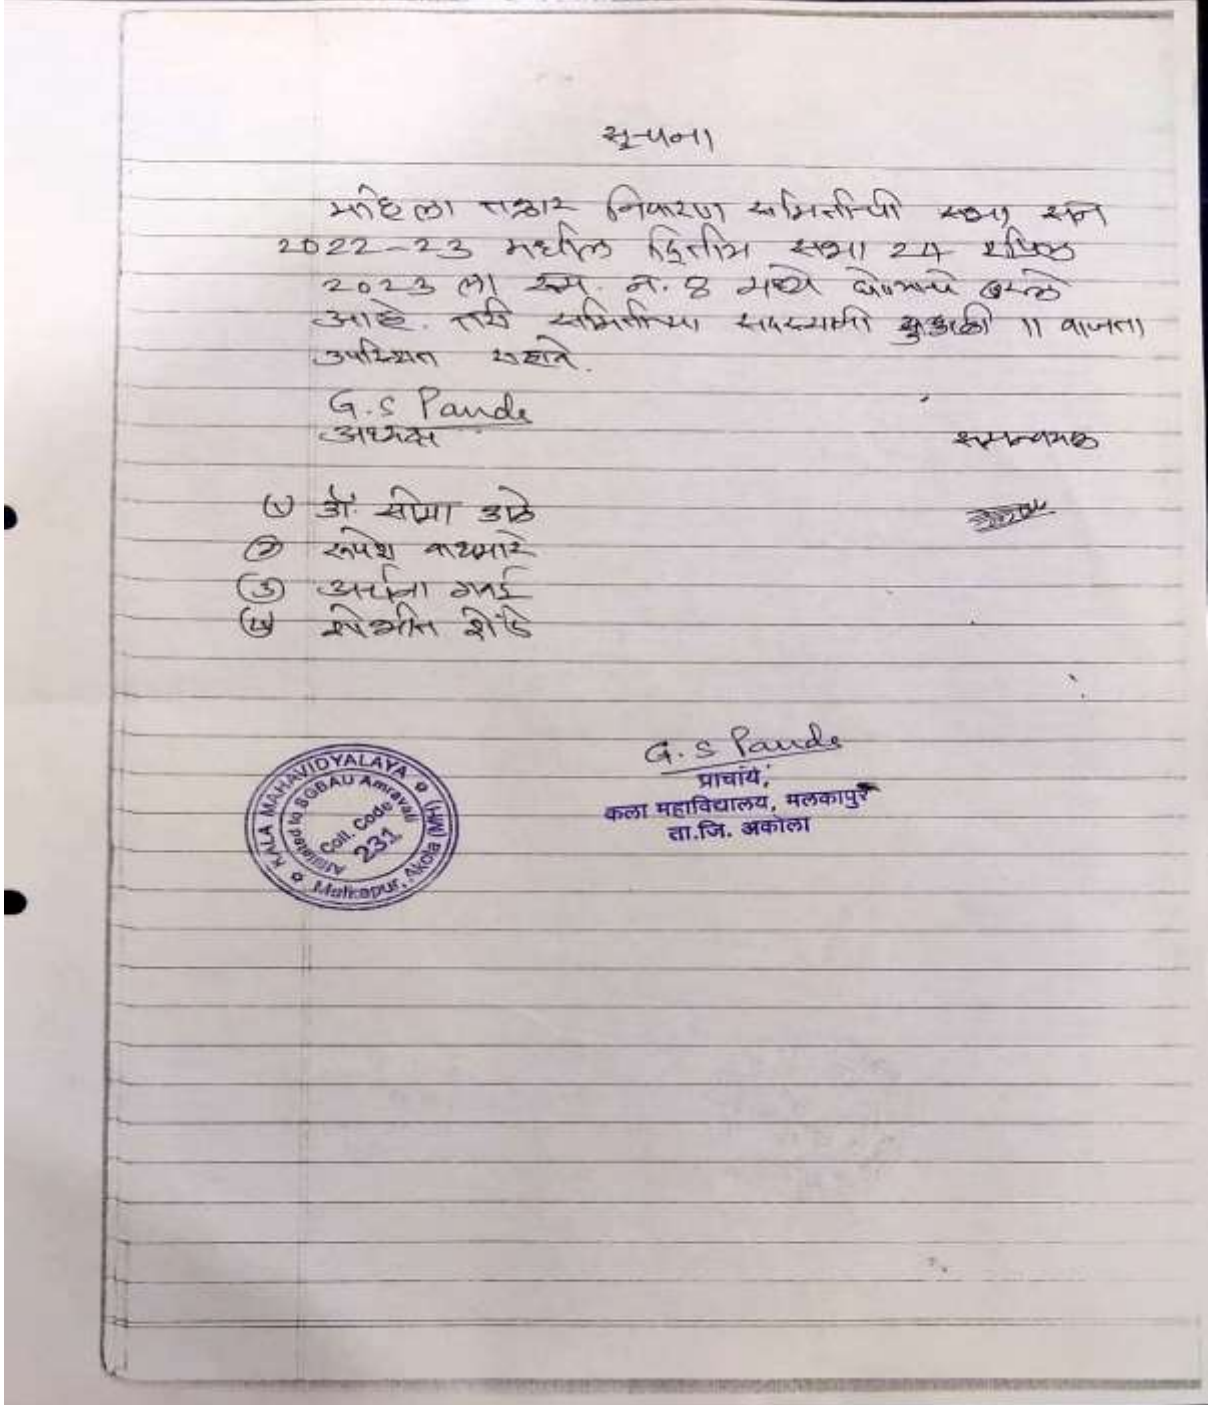 सूचना
महिला तक्रार निवारण समितीची सभा सन
2022-23 मधील द्वितीय सभा 24 एप्रिल
2023 ला रूम. न. 8 मध्ये घेण्याचे ठरले
आहे. तरी समितीच्या सदस्यांनी सकाळी 11 वाजता
उपस्थित राहावे.
G.S Pande
अध्यक्ष
समन्वयक
(1) डॉ. सीमा
(2) रूपेश वाघमारे
(3) अर्चना गवई
(4)
G. S Pande
प्राचार्य,
कला महाविद्यालय, मलकापुर
ता.जि. अकोला
KALA MAHAVIDYALAYA
Malkapur, Akola (MH)
Affiliated to SGBAU Amravati
Coll. Code
231